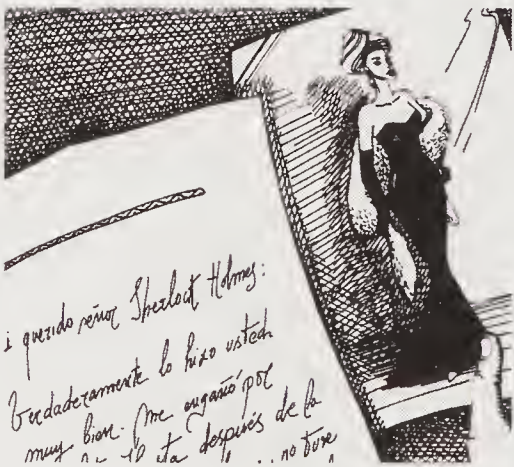 i querido señor Sherlock Holmes:
Verdaderamente lo hizo usted
muy bien. Me engañó por
después de la
no tuve